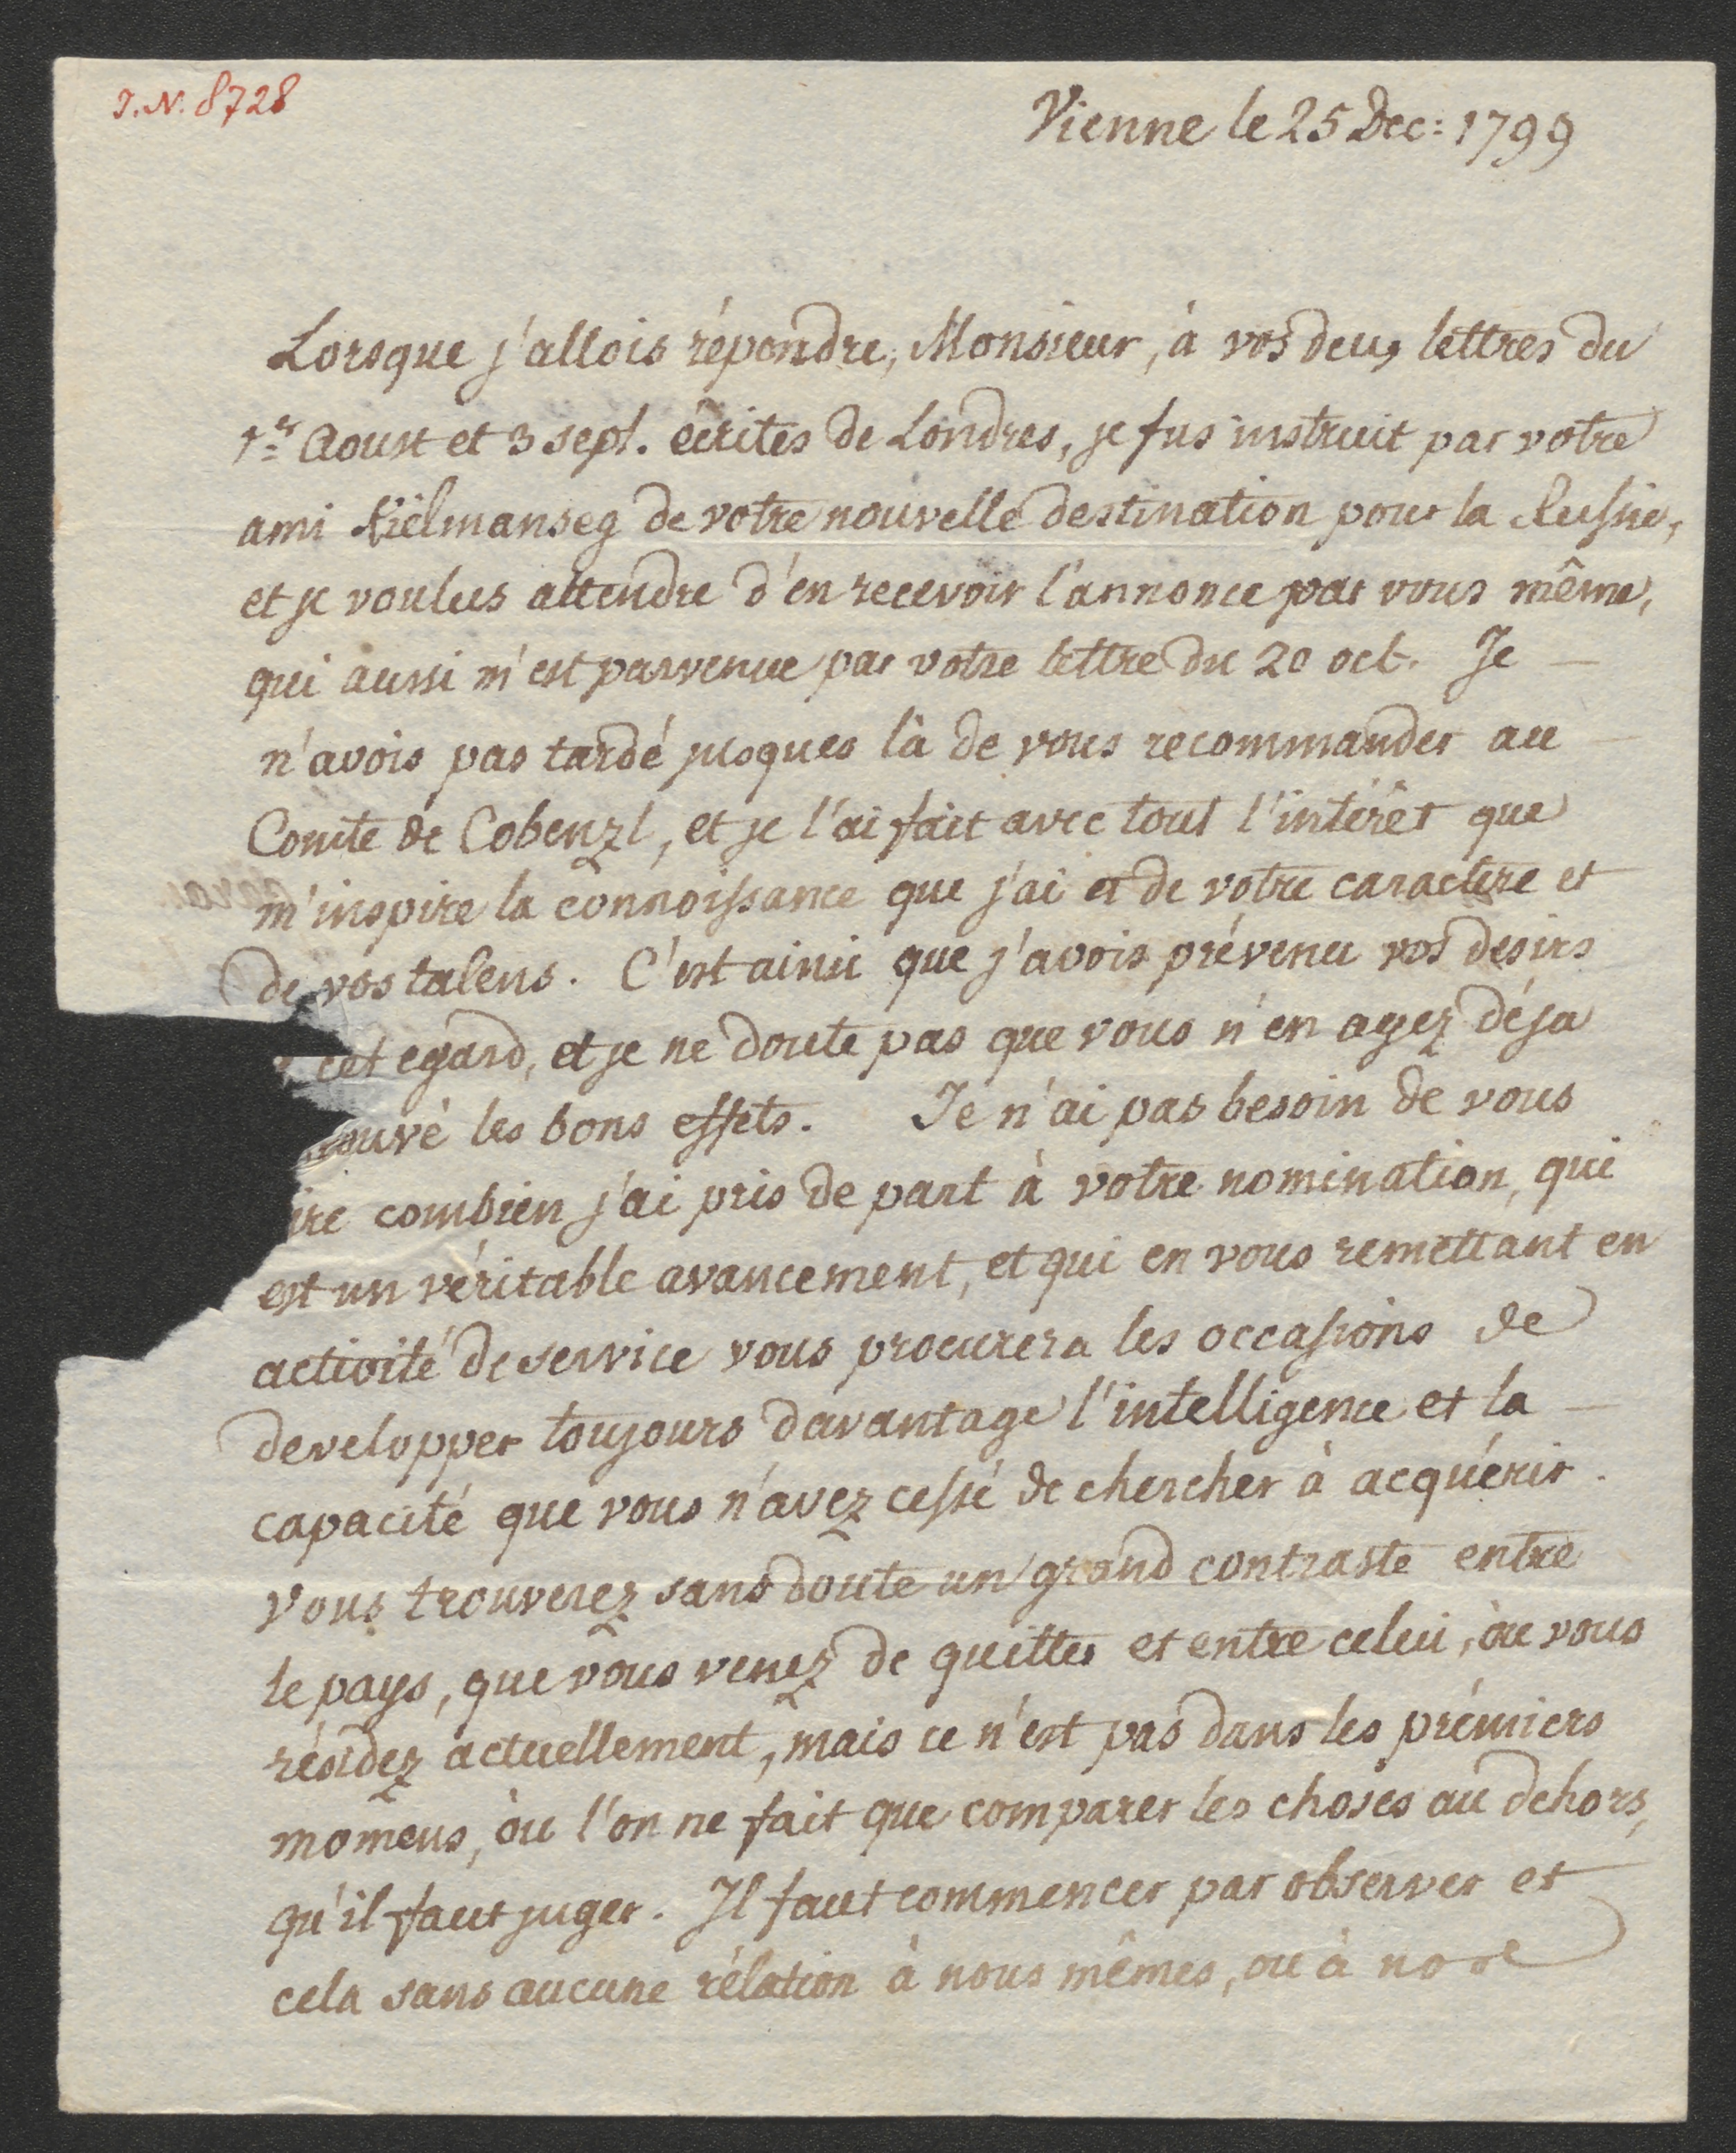 I.N. 8728
Vienne le 25 Dec: 1799
Lorsque j'allois répondre, Monsieur, à vos deux lettres du
1er Aoust et 3 sept. écrites de Londres, je fus instruit par votre
ami Kielmanseg de votre nouvelle destination pour la Russie,
et je voulus attendre d'en recevoir l'annonce par vous même,
qui aussi m'est parvenue par votre lettre du 20 oct. Je
n'avois pas tardé jusques là de vous recommander au
Comte de Cobenzl, et je l'ai fait avec tout l'intérêt que
m'inspire la connoissance que j'ai et de votre caractere et
de vos talens. C'est ainsi que j'avois prévenu vos desirs
cet egard, et je ne doute pas que vous n'en ayez déja
rouvé les bons effets. Je n'ai pas besoin de vous
ire combien j'ai pris de part à votre nomination, qui
est un véritable avancement, et qui en vous remettant en
activité de service vous procurera les occasions de
developper toujours davantage l'intelligence et la
capacité que vous n'avez cessé de chercher à acquérir.
Vous trouverez sans doute un grand contraste entre
le pays, que vous venez de quitter et entre celui, òu vous
résidez actuellement, mais ce n'est pas dans les prémiers
momens, òu l'on ne fait que comparer les choses au dehors,
qu'il faut juger. Il faut commencer par observer et
cela sans aucune rélation à nous mêmes, ou à notre